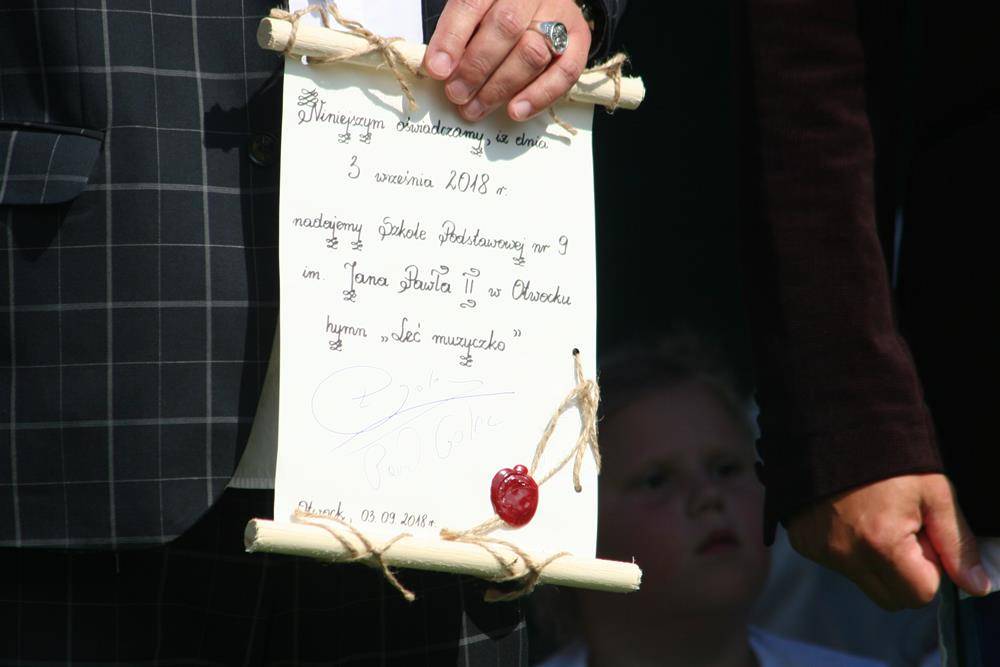 Niniejszym oświadczamy, iż dnia
3 września 2018 r.
nadajemy Szkole Podstawowej nr 9
im. Jana Pawła II w Otwocku
hymn „Leć muzyczko”
Otwock, 03.09.2018r.